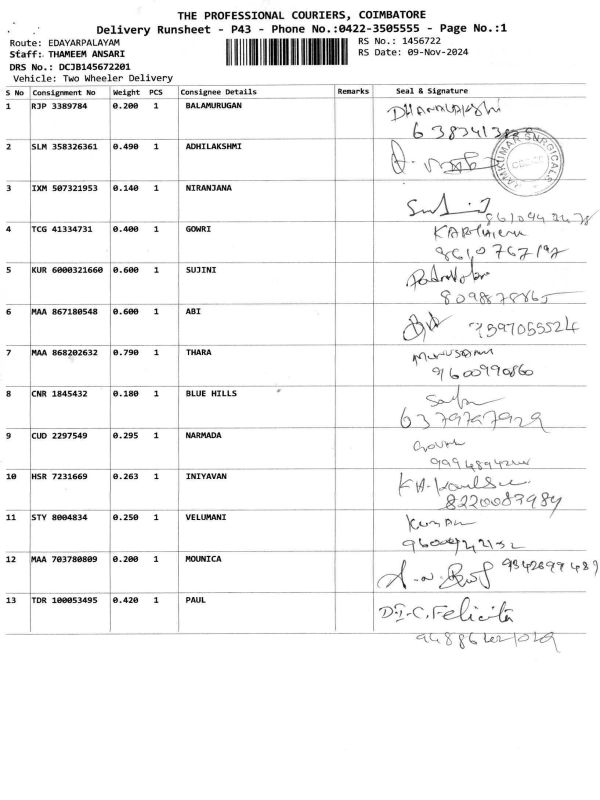 THE PROFESSIONAL COURIERS, COIMBATORE
Delivery Runsheet - P43 - Phone No.:0422-3505555 - Page No.:1
Route: EDAYARPALAYAM RS No.: 1456722
Staff: THAMEEM ANSARI RS Date: 09-Nov-2024
DRS No.: DCJB145672201
Vehicle: Two Wheeler Delivery
S No Consignment No Weight PCS Consignee Details Remarks Seal & Signature
1 RJP 3389784 0.200 1 BALAMURUGAN
2 SLM 358326361 0.490 1 ADHILAKSHMI
3 IXM 507321953 0.140 1 NIRANJANA
4 TCG 41334731 0.400 1 GOWRI
8610767197
5 KUR 6000321660 0.600 1 SUJINI
8098878865
6 MAA 867180548 0.600 1 ABI 7397055524
7 MAA 868202632 0.790 1 THARA
9600990860
8 CNR 1845432 0.180 1 BLUE HILLS
6379797929
9 CUD 2297549 0.295 1 NARMADA
10 HSR 7231669 0.263 1 INIYAVAN
8220083984
11 STY 8004834 0.250 1 VELUMANI
12 MAA 703780809 0.200 1 MOUNICA 9342699487
13 TDR 100053495 0.420 1 PAUL D.I.C. Felicita